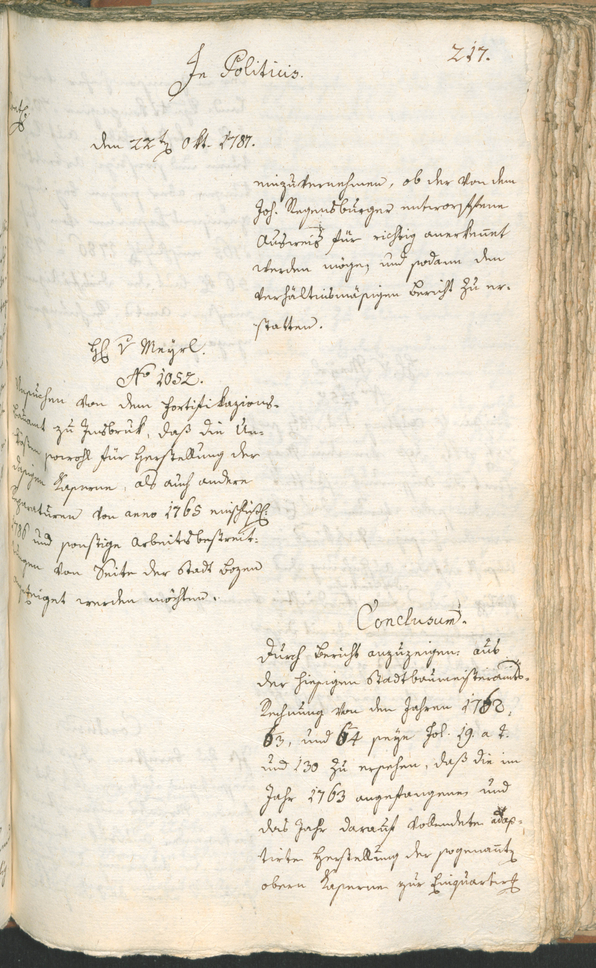 In Politicis.
217.
den 22t 8 Okt. 1787.
einzuvernehmen, ob der von dem
Joh. Regensburger entworffene
Ausweis für richtig anerkennt
werden möge, und sodann den
verhältnismäsigen Bericht zu er-
statten.
H. v. Meyrl.
No 1052.
Ansuchen von dem Fortifikazions-
bauamt zu Insbruk, daß die Un-
kösten sowohl für Herstellung der
dasigen Kaserne, als auch andere
Reparaturen von anno 1765 einschlüssig
1786 und sonstige Arbeitsbestreit-
ungen von Seite der Stadt Bozen
angezeiget werden möchten.
Conclusum.
Durch Bericht anzuzeigen: aus
der hiesigen Stadtbaumeisteramts-
Rechnung von den Jahren 1762,
63, und 64 seye Fol. 19. a t.
und 130 zu ersehen, daß die im
Jahr 1763 angefangene, und
das Jahr darauf vollendete adap-
tirte Herstellung der sogenannt
obern Kaserne zur Einquartier